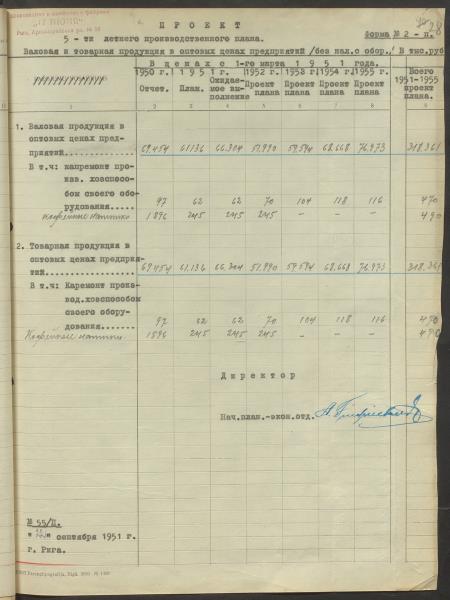 П Р О Е К Т
5 - ти летнего производственного плана.
Форма № 2 - п.
Валовая и товарная продукция в оптовых ценах предприятий /без нал. с обор./ В тыс. руб
В ц е н а х с 1-го марта 1 9 5 1 года.
1950 г. 1 9 5 1 г. 1952 г. 1953 г 1954 г 1955 г. Всего 1951-1955 проект плана
Отчет. План. Ожидаемое выполнение Проект плана Проект плана Проект плана Проект плана
1 2 3 4 5 6 7 8 9
1. Валовая продукция в
оптовых ценах пред-
приятий 69.454 61.136 66.304 51.990 59.594 68.668 76.973 318.361
В т.ч: капремонт про-
изв. хозспосо-
бом своего обо-
рудования 97 62 62 70 104 118 116 470
Кофейные напитки 1896 245 245 245 - - - 490
2. Товарная продукция в
оптовых ценах предприя-
тий 69.454 61.136 66.304 51.990 59.594 68.668 76.973 318.361
В т.ч: Капремонт произ-
вод. хозспособом
своего обору-
дования 97 62 62 70 104 118 116 470
Кофейные напитки 1896 245 245 245 - - - 490
Д и р е к т о р
Нач. план.-экон. отд.
№ 55/П.
сентября 1951 г.
г. Рига.